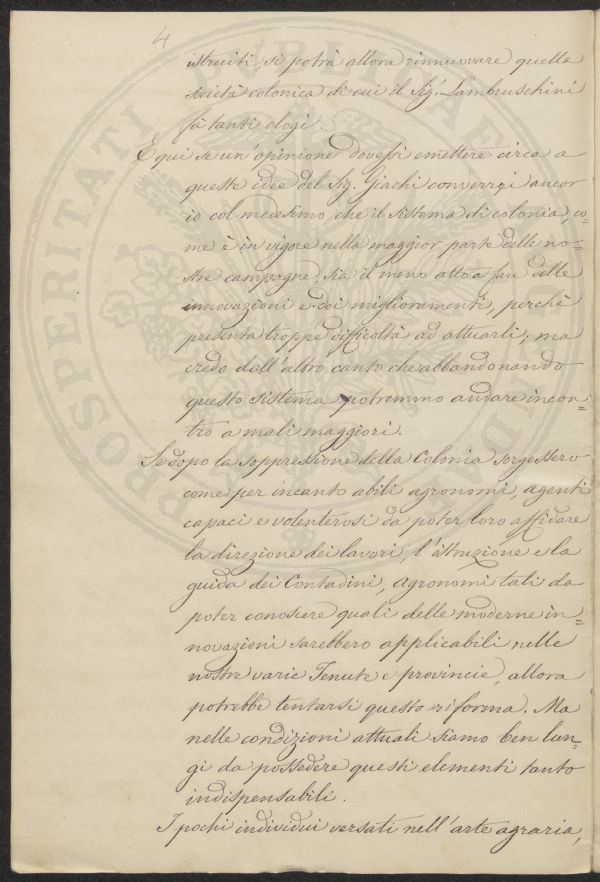 4
istruiti, si potrà allora rinnuovare quella
società colonica di cui il Sig.r Lambruschini
fà tanti elogi.
E qui se un'opinione dovessi emettere circa a
queste idee del Sig. Giachi converrei ancor
io col medesimo che il sistema di colonia, co=
me è in vigore nella maggior parte delle no=
stre campagne, sia il meno atto a fare delle
innovazioni e dei miglioramenti, perchè
presenta troppe difficoltà ad attuarli; ma
credo dall'altro canto che abbandonando
questo sistema potremmo andare incon=
tro a mali maggiori.
Se dopo la soppressione della Colonia sorgessero
come per incanto abili agronomi, agenti
capaci e volenterosi da poter loro affidare
la direzione dei lavori, l'istruzione e la
guida dei Contadini, Agronomi tali da
poter conoscere quali delle moderne in=
novazioni sarebbero applicabili nelle
nostre varie Tenute e provincie, allora
potrebbe tentarsi questa riforma. Ma
nelle condizioni attuali siamo ben lun=
gi da possedere questi elementi tanto
indispensabili.
I pochi individui versati nell'arte agraria,
PROSPERITATI PUBLICAE AU